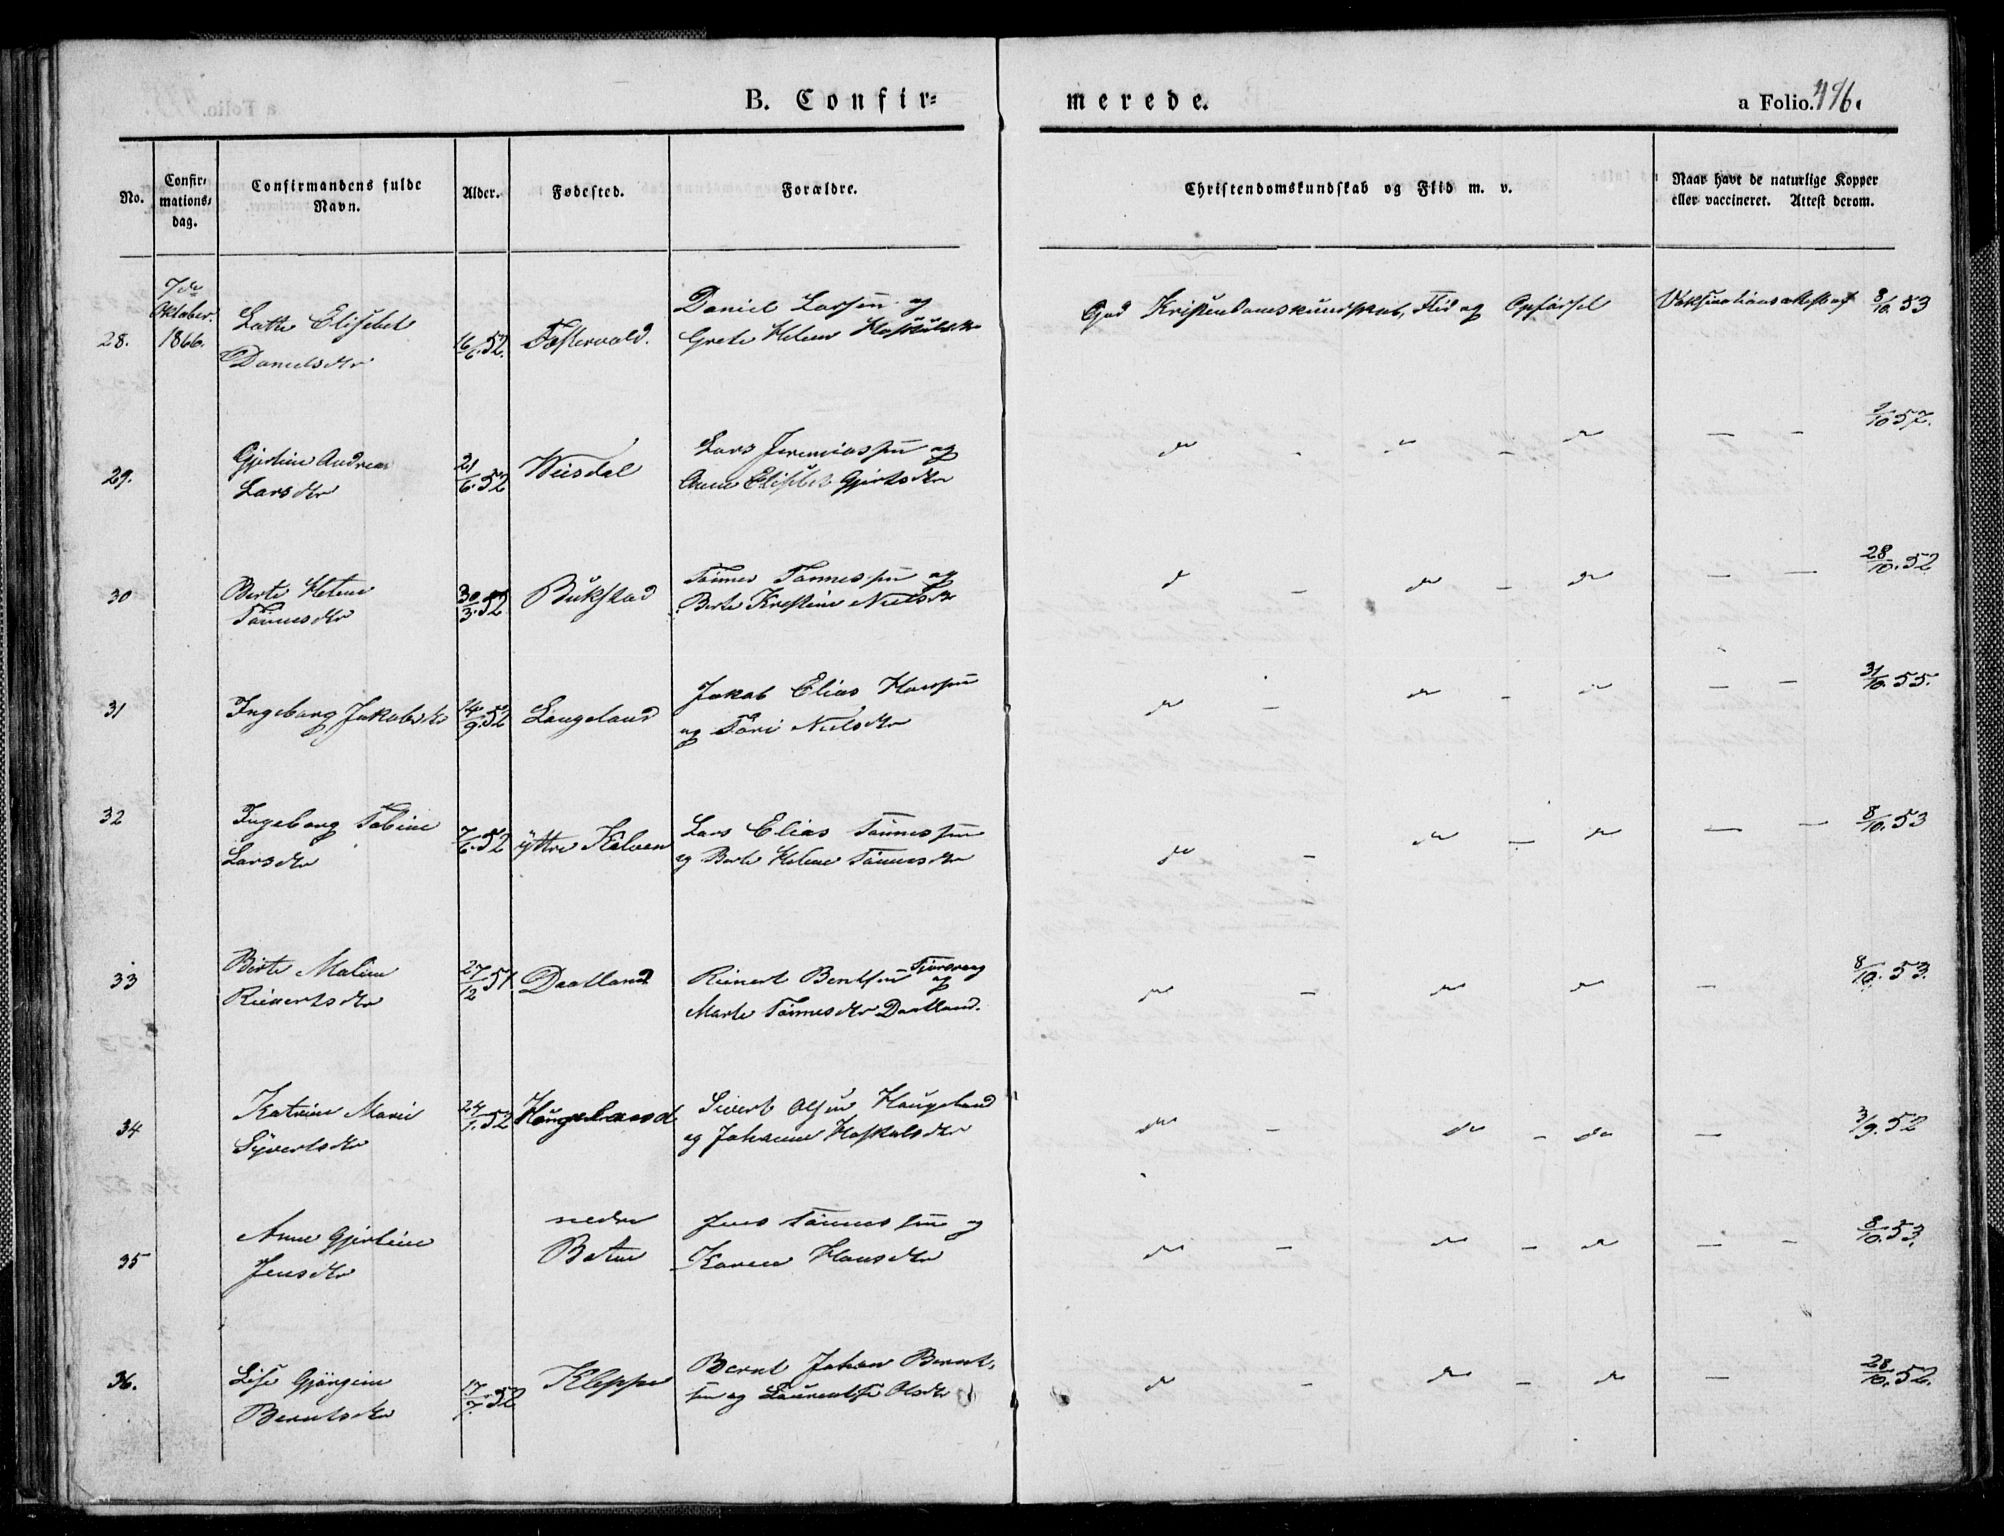 B. Confir=
merede.
a Folio.
No.
Confir-
mations-
dag.
Confirmandens fulde
Navn.
Alder.
Fødested.
Forældre.
Christendomskundskab og Flid m. v.
Naar havt de naturlige Kopper
eller vaccineret. Attest derom.
28.
7de
Oktober
1866.
Elisebet
Danielsdtr
16/6.52.
Daniel Larsen og
Grete Helene
God Kristendomskundskab, Flid og Opførsel
Vaksinationsattest af 8/10.53
29.
Gjertine Andrea
Larsdtr
21/6.52
Lars Jeremiassen og
Anne Elisebet Gjertsdtr
do - do
30
Berte Helene
Tønnesdtr
30/3.52
Bukstad
Tønnes Tønnessen og
Berte Kristine Nielsdtr
do - do - do
28/10.52
31
Ingeborg Jakobsdtr
14/9.52
Langeland
Jakob Elias Hansen
og Tori Nielsdtr
do - do - do
3/10.55.
32
Ingeborg Tobine
Larsdtr
7/6.52
yttre Kelven
Lars Elias Tønnessen
og Berte Helene Tønnesdtr
do - do - do
8/10.53
33
Berte Malene
Reinertsdtr
27/12.51.
Daatland
Reinert Bentsen
og
Marte Tønnesdtr Daatland.
do - do do
8/10.53.
34
Katrine Marie
Syvertsdtr
24/1.52
Haugeland
Sivert Olsen Haugeland
og Johanne Haskolsdtr
do - do - do
3/9.52
35
Anne Gjertine
Jensdtr
nedre
Jens Tønnessen og
Karen Hansdtr
do - do - do
8/10.53.
36.
Lise
Berntsdtr
17/7.52
Kleppe
Bernt Johan Bernt-
sen og Olsdtr
do - do - do
28/10.52.